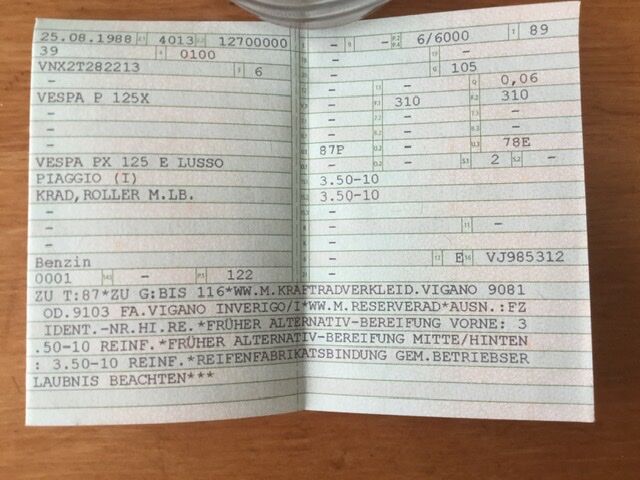 25.08.1988 2.1 4013 2.2 12700000
39 4 0100
VNX2T282213 3 6
-
VESPA P 125X
-
-
VESPA PX 125 E LUSSO
PIAGGIO (I)
KRAD,ROLLER M.LB.
-
-
Benzin
0001 14.1 - P.1 122
- 9 - P.2 P.4 6/6000 T 89
- -
- G 105
- - Q 0,06
- F.1 310 F.2 310
- - -
- - -
87P - U.3 78E
- O.2 - S.1 2 S.2 -
3.50-10
3.50-10
-
- 11 -
-
- E 16 VJ985312
-
ZU T:87*ZU G:BIS 116*WW.M.KRAFTRADVERKLEID.VIGANO 9081
OD.9103 FA.VIGANO INVERIGO/I*WW.M.RESERVERAD*AUSN.:FZ
IDENT.-NR.HI.RE.*FRÜHER ALTERNATIV-BEREIFUNG VORNE: 3
.50-10 REINF.*FRÜHER ALTERNATIV-BEREIFUNG MITTE/HINTEN
: 3.50-10 REINF.*REIFENFABRIKATSBINDUNG GEM.BETRIEBSER
LAUBNIS BEACHTEN***